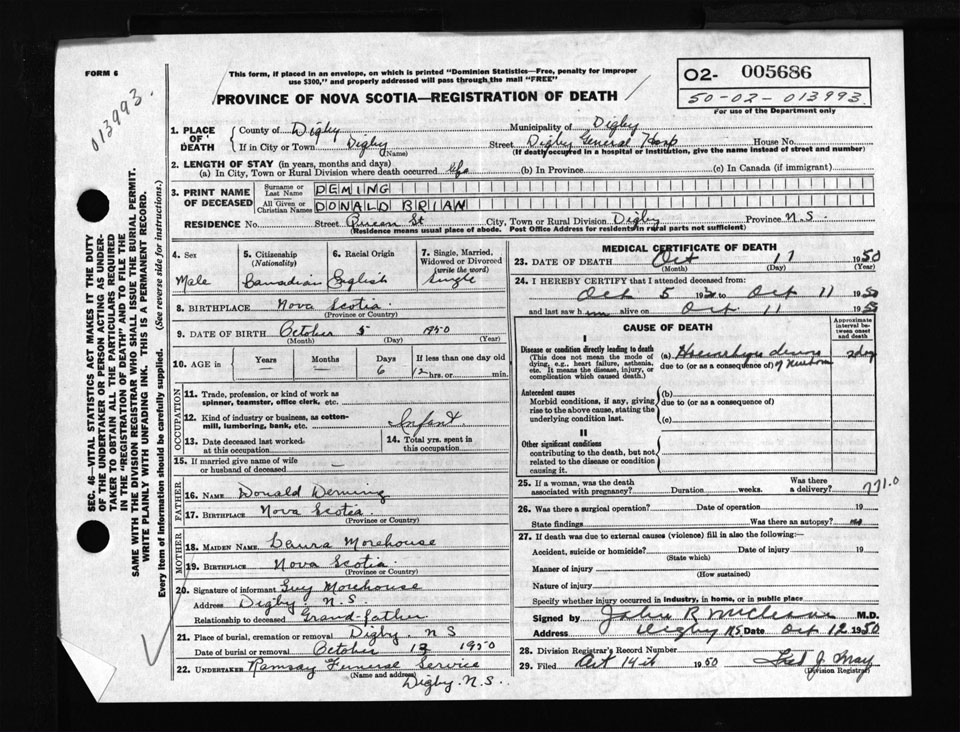 FORM 6
013993.
This form, if placed in an envelope, on which is printed "Dominion Statistics—Free, penalty for improper
use $300," and properly addressed will pass through the mail "FREE"
PROVINCE OF NOVA SCOTIA—REGISTRATION OF DEATH
O2- 005686
50-02-013993
For use of the Department only
1. PLACE OF DEATH { County of Digby Municipality of Digby
If in City or Town Digby (Name) Street Digby General Hosp House No.
(If death occurred in a hospital or institution, give the name instead of street and number)
2. LENGTH OF STAY (in years, months and days)
(a) In City, Town or Rural Division where death occurred life (b) In Province (c) In Canada (if immigrant)
3. PRINT NAME OF DECEASED { Surname or Last Name DEMING
All Given or Christian Names DONALD BRIAN
RESIDENCE No. Street Queen St City, Town or Rural Division Digby Province N.S.
(Residence means usual place of abode. Post Office Address for residents in rural parts not sufficient)
4. Sex Male
5. Citizenship (Nationality) Canadian
6. Racial Origin English
7. Single, Married, Widowed or Divorced (write the word) Single
8. BIRTHPLACE Nova Scotia
(Province or Country)
9. DATE OF BIRTH October 5 1950
(Month) (Day) (Year)
10. AGE in { Years Months Days 6 If less than one day old 12 hrs. or min.
OCCUPATION
11. Trade, profession, or kind of work as
spinner, teamster, office clerk, etc.
12. Kind of industry or business, as cotton-
mill, lumbering, bank, etc. Infant
13. Date deceased last worked
at this occupation
14. Total yrs. spent in
this occupation
15. If married give name of wife
or husband of deceased —
FATHER
16. NAME Donald Deming
17. BIRTHPLACE Nova Scotia
(Province or Country)
MOTHER
18. MAIDEN NAME Morehouse
19. BIRTHPLACE Nova Scotia
(Province or Country)
20. Signature of informant Guy Morehouse
Address Digby. N.S.
Relationship to deceased Grand-father
21. Place of burial, cremation or removal Digby. N S
Date of burial or removal October 1950
22. UNDERTAKER Ramsay Funeral Service
(Name and address) Digby. N.S.
MEDICAL CERTIFICATE OF DEATH
23. DATE OF DEATH Oct 11 1950
(Month) (Day) (Year)
24. I HEREBY CERTIFY that I attended deceased from:
Oct 5 19 to Oct 11 1950
and last saw h im alive on Oct 11 1950
CAUSE OF DEATH
Approximate interval between onset and death
I
Disease or condition directly leading to death
(This does not mean the mode of
dying, e.g., heart failure, asthenia,
etc. It means the disease, injury, or
complication which caused death.)
(a) of Newborn
due to (or as a consequence of)
Antecedent causes
Morbid conditions, if any, giving
rise to the above cause, stating the
underlying condition last.
(b)
due to (or as a consequence of)
(c)
II
Other significant conditions
contributing to the death, but not
related to the disease or condition
causing it.
25. If a woman, was the death
associated with pregnancy? Duration weeks. Was there
a delivery? 771.0
26. Was there a surgical operation? Date of operation 19
State findings Was there an autopsy? no
27. If death was due to external causes (violence) fill in also the following:—
Accident, suicide or homicide? Date of injury 19
(State which)
Manner of injury
(How sustained)
Nature of injury
Specify whether injury occurred in industry, in home, or in public place
Signed by John R M.D.
Address Digby N.S. Date Oct 12 1950
28. Division Registrar's Record Number
29. Filed Oct 14th 1950 Fred J. May
(Division Registrar)
SEC. 46—VITAL STATISTICS ACT MAKES IT THE DUTY
OF THE UNDERTAKER OR PERSON ACTING AS UNDER-
TAKER TO OBTAIN ALL THE PARTICULARS REQUIRED
IN THE "REGISTRATION OF DEATH" AND TO FILE THE
SAME WITH THE DIVISION REGISTRAR WHO SHALL ISSUE THE BURIAL PERMIT.
WRITE PLAINLY WITH UNFADING INK. THIS IS A PERMANENT RECORD.
Every item of information should be carefully supplied. (See reverse side for instructions.)